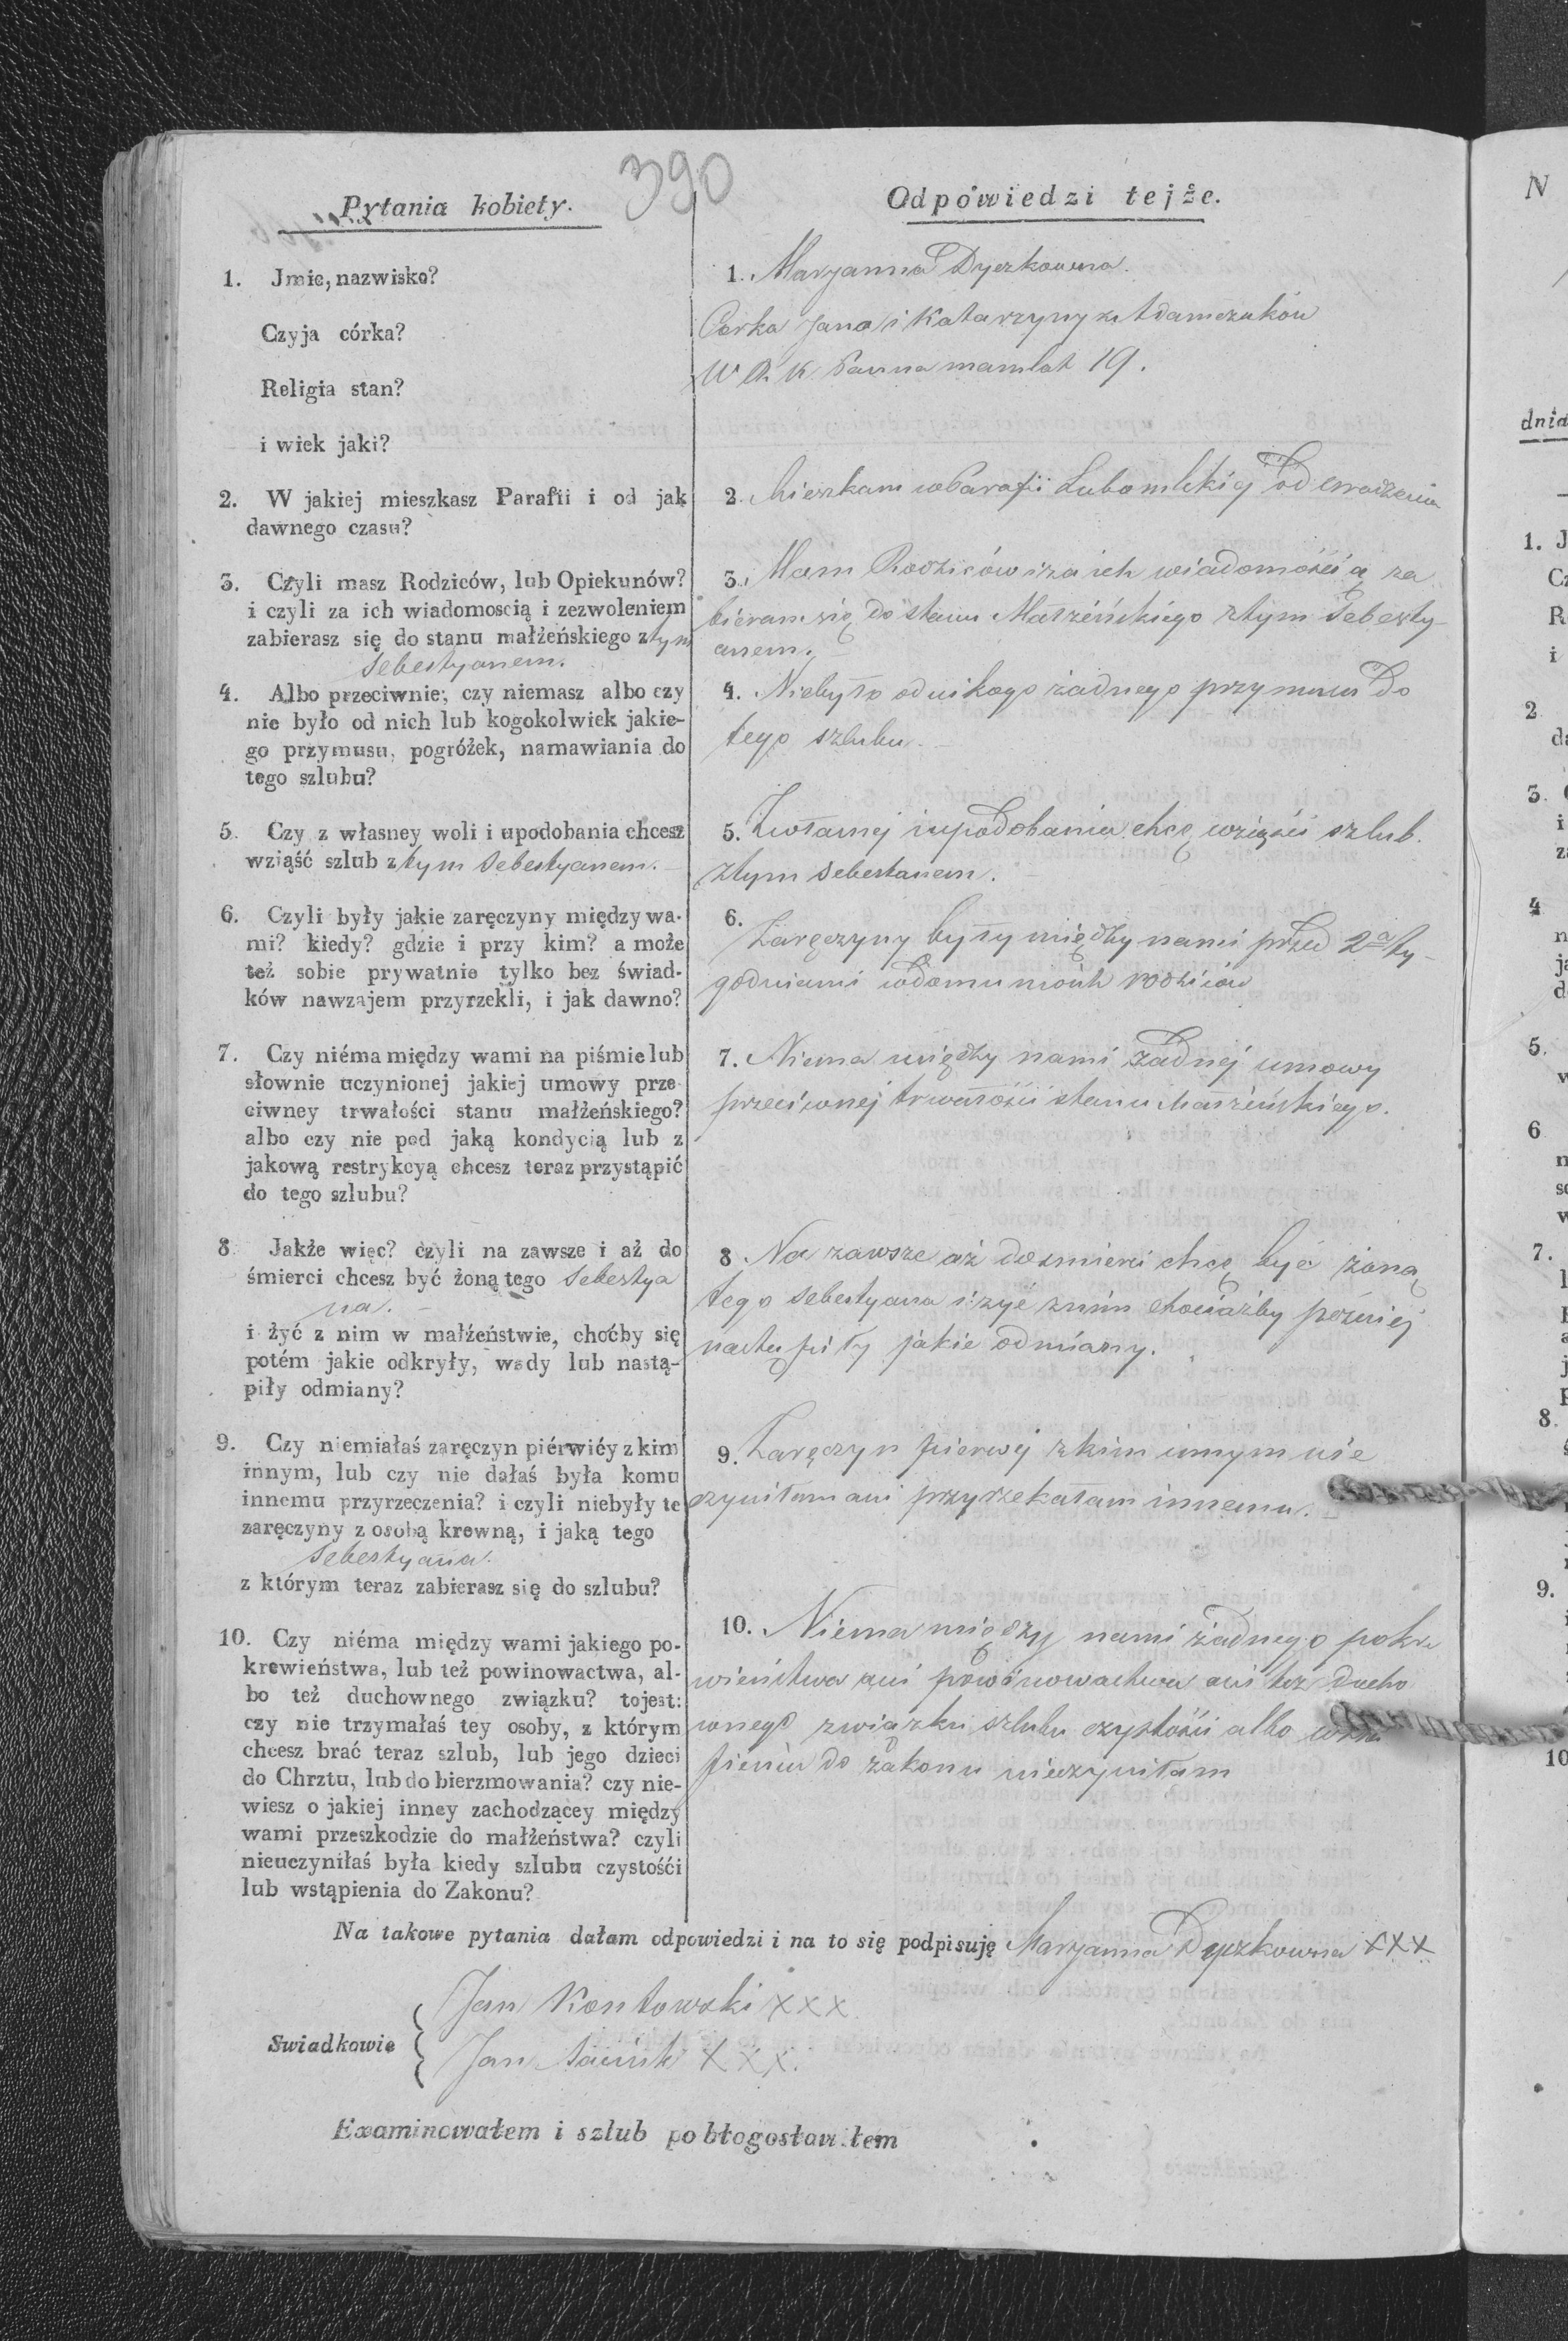 390
Pytania kobiety.
1. Jmie, nazwisko?
Czyja córka?
Religia stan?
i wiek jaki?
2. W jakiej mieszkasz Parafii i od jak
dawnego czasu?
3. Czyli masz Rodziców, lub Opiekunów?
i czyli za ich wiadomoscią i zezwoleniem
zabierasz się do stanu małżeńskiego z tym
Sebestyanem.
4. Albo przeciwnie, czy niemasz albo czy
nie było od nich lub kogokolwiek jakie-
go przymusu, pogróżek, namawiania do
tego szlubu?
5. Czy z własney woli i upodobania chcesz
wziąść szlub z tym Sebestyanem.
6. Czyli były jakie zaręczyny między wa-
mi? kiedy? gdzie i przy kim? a może
też sobie prywatnie tylko bez świad-
ków nawzajem przyrzekli, i jak dawno?
7. Czy niéma między wami na piśmie lub
słownie uczynionej jakiej umowy prze-
ciwney trwałości stanu małżeńskiego?
albo czy nie pod jaką kondycią lub z
jakową restrykcyą chcesz teraz przystąpić
do tego szlubu?
8 Jakże więc? czyli na zawsze i aż do
śmierci chcesz być żoną tego Sebestya
na.
i żyć z nim w małżeństwie, choćby się
potém jakie odkryły, wady lub nastą-
piły odmiany?
9. Czy niemiałaś zaręczyn piérwiéy z kim
innym, lub czy nie dałaś była komu
innemu przyrzeczenia? i czyli niebyły te
zaręczyny z osobą krewną, i jaką tego
Sebestyana.
z którym teraz zabierasz się do szlubu?
10. Czy niéma między wami jakiego po-
krewieństwa, lub też powinowactwa, al-
bo też duchownego związku? tojest:
czy nie trzymałaś tey osoby, z którym
chcesz brać teraz szlub, lub jego dzieci
do Chrztu, lub do bierzmowania? czy nie-
wiesz o jakiej inney zachodzącey między
wami przeszkodzie do małżeństwa? czyli
nieuczyniłaś była kiedy szlubu czystośći
lub wstąpienia do Zakonu?
Odpowiedzi tejże.
1. Maryanna Dyczkowna.
Corka Jana i Katarzyny z Adamczuków
W R. K Panna mam lat 19.
2. Mieszkam w Parafii Lubomlskiej od urodzenia
3. Mam Rodziców i za ich wiadomością za
bieram się do stanu Małżeńskiego z tym Sebesty-
anem.
4. Niebyło od nikogo żadnego przymusu do
tego szlubu.
5. Z własnej i upodobania chcę wziąść szlub.
z tym Sebestanem.
6.
Zaręczyny były między nami przed 2a ty-
godniami w domu moich rodziców
7. Niema między nami żadnej umowy
przeciwnej trwałości stanu Małżeńskiego.
8 Na zawsze aż do smierci chcę być żoną
tego Sebestyana i żyć z nim chociażby pożniej
nastąpiły jakie odmiany.
9. Zaręczyn pierwej z kim innym nie
czyniłam ani przyrzekałam innemu.
10. Niema między nami żadnego pokre
wieństwa ani powinowactwa ani też ducho
wnego związku szlubu czystości albo wstą
pienia do zakonu nieczyniłam
Na takowe pytania dałam odpowiedzi i na to się podpisuję Maryanna Dyczkowna XXX
Swiadkowie
Jan Kontowski XXX
Jan XXX.
Examinowałem i szlub pobłogosławiłem
N
dnia